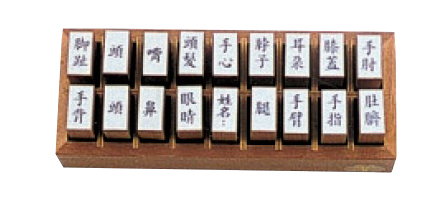 脚趾 頭 嘴 頭髮 手心 脖子 耳朵 膝蓋 手肘
手背 頭 鼻 眼睛 姓名： 腿 手臂 手指 肚臍